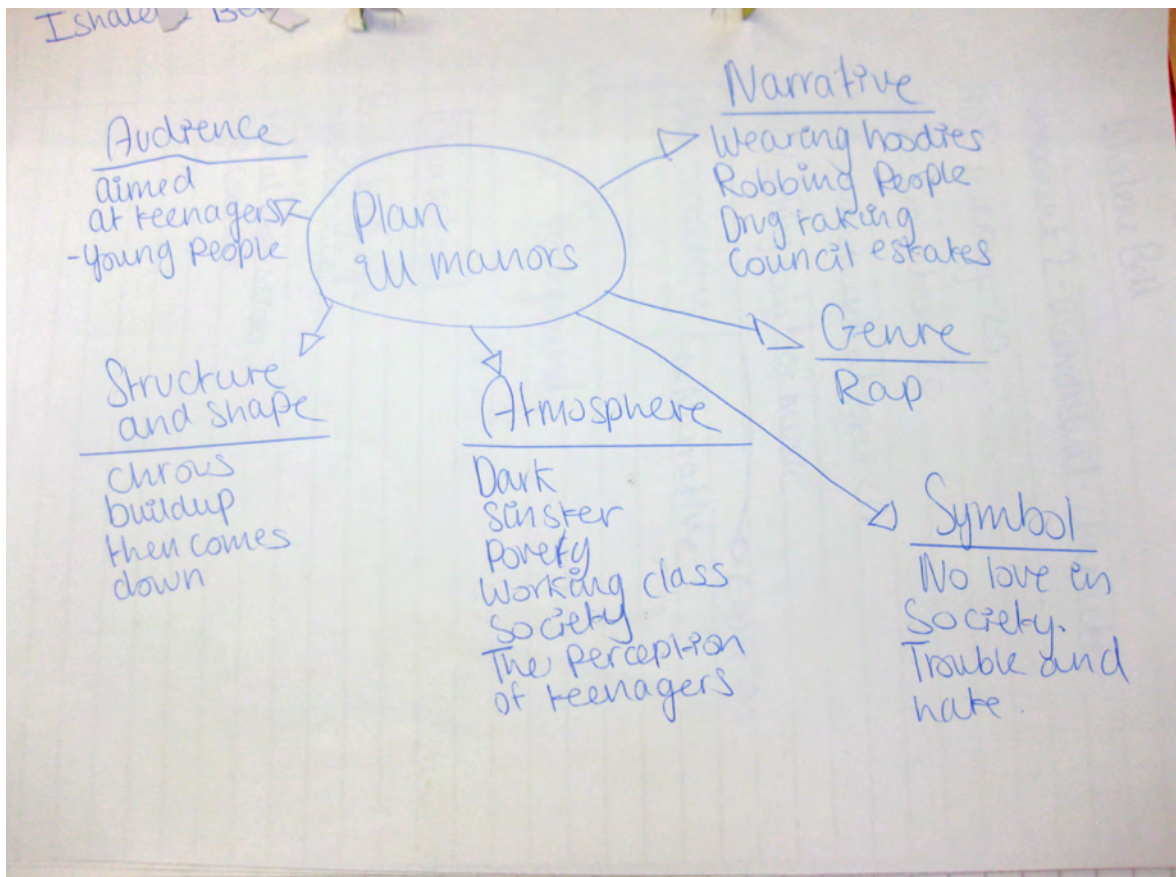 Plan
ill manors
Audience
aimed
at teenagers
-young people
Narrative
Wearing hoodies
Robbing People
Drug taking
Council estates
Genre
Rap
Structure
and shape
chrous
buildup
then comes
down
Atmosphere
Dark
Sinster
Porety
Working class
Society
The perception
of teenagers
Symbol
No love in
Society.
Trouble and
hate.